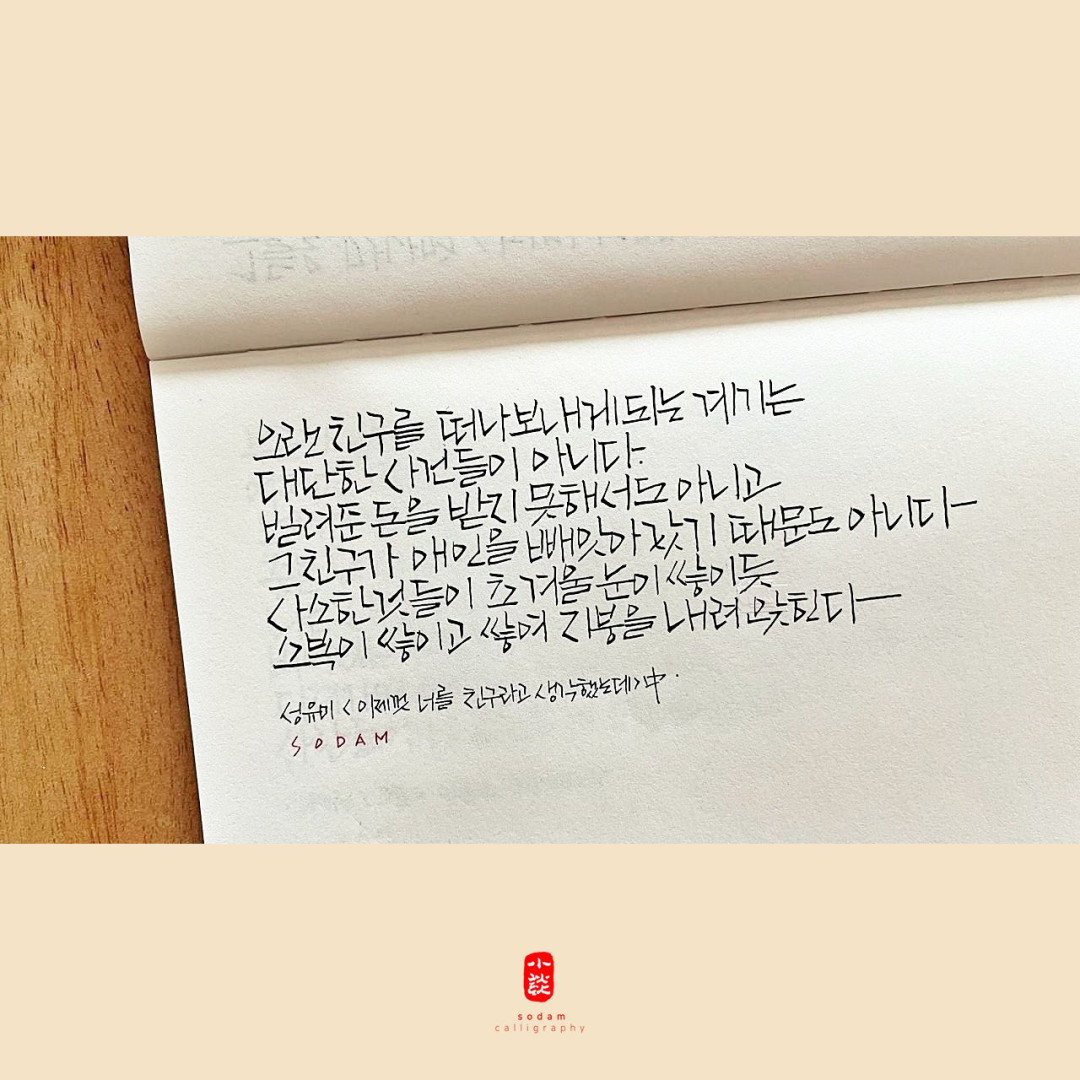 오랜 친구를 떠나보내게되는 계기는
대단한 사건들이 아니다.
빌려준 돈을 받지 못해서도 아니고
그친구가 애인을 빼앗아 갔기 때문도 아니다
사소한것들이 초겨울 눈이 쌓이듯
소복이 쌓이고 쌓여 지붕을 내려앉힌다
성유미 <이제껏 너를 친구라고 생각했는데>中.
SODAM
小談
sodam
calligraphy